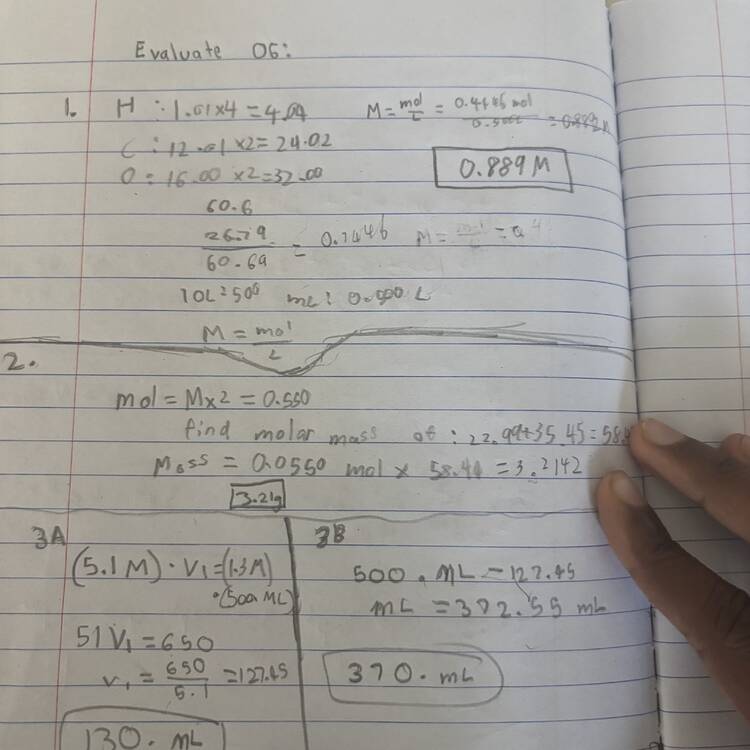 Evaluate 06:
1. H : 1.01x4 = 4.04
C : 12.01 x2 = 24.02
O : 16.00 x2 = 32.00
60.6
26.79 / 60.69 =
M = mol / L =
0.889 M
mL : 0.500 L
M = mol / L
2.
mol = Mx2 = 0.550
find molar mass of : 22.99+35.45 =
Mass = 0.0550 mol x 58.44 = 3.2142
3.21g
3A
(5.1M) · V₁ = (1.3M)
·(500 ML)
51 V₁ = 650
V₁ = 650 / 5.1 = 127.45
130. mL
3B
500. mL - 127.45
mL = 372.55 mL
370. mL